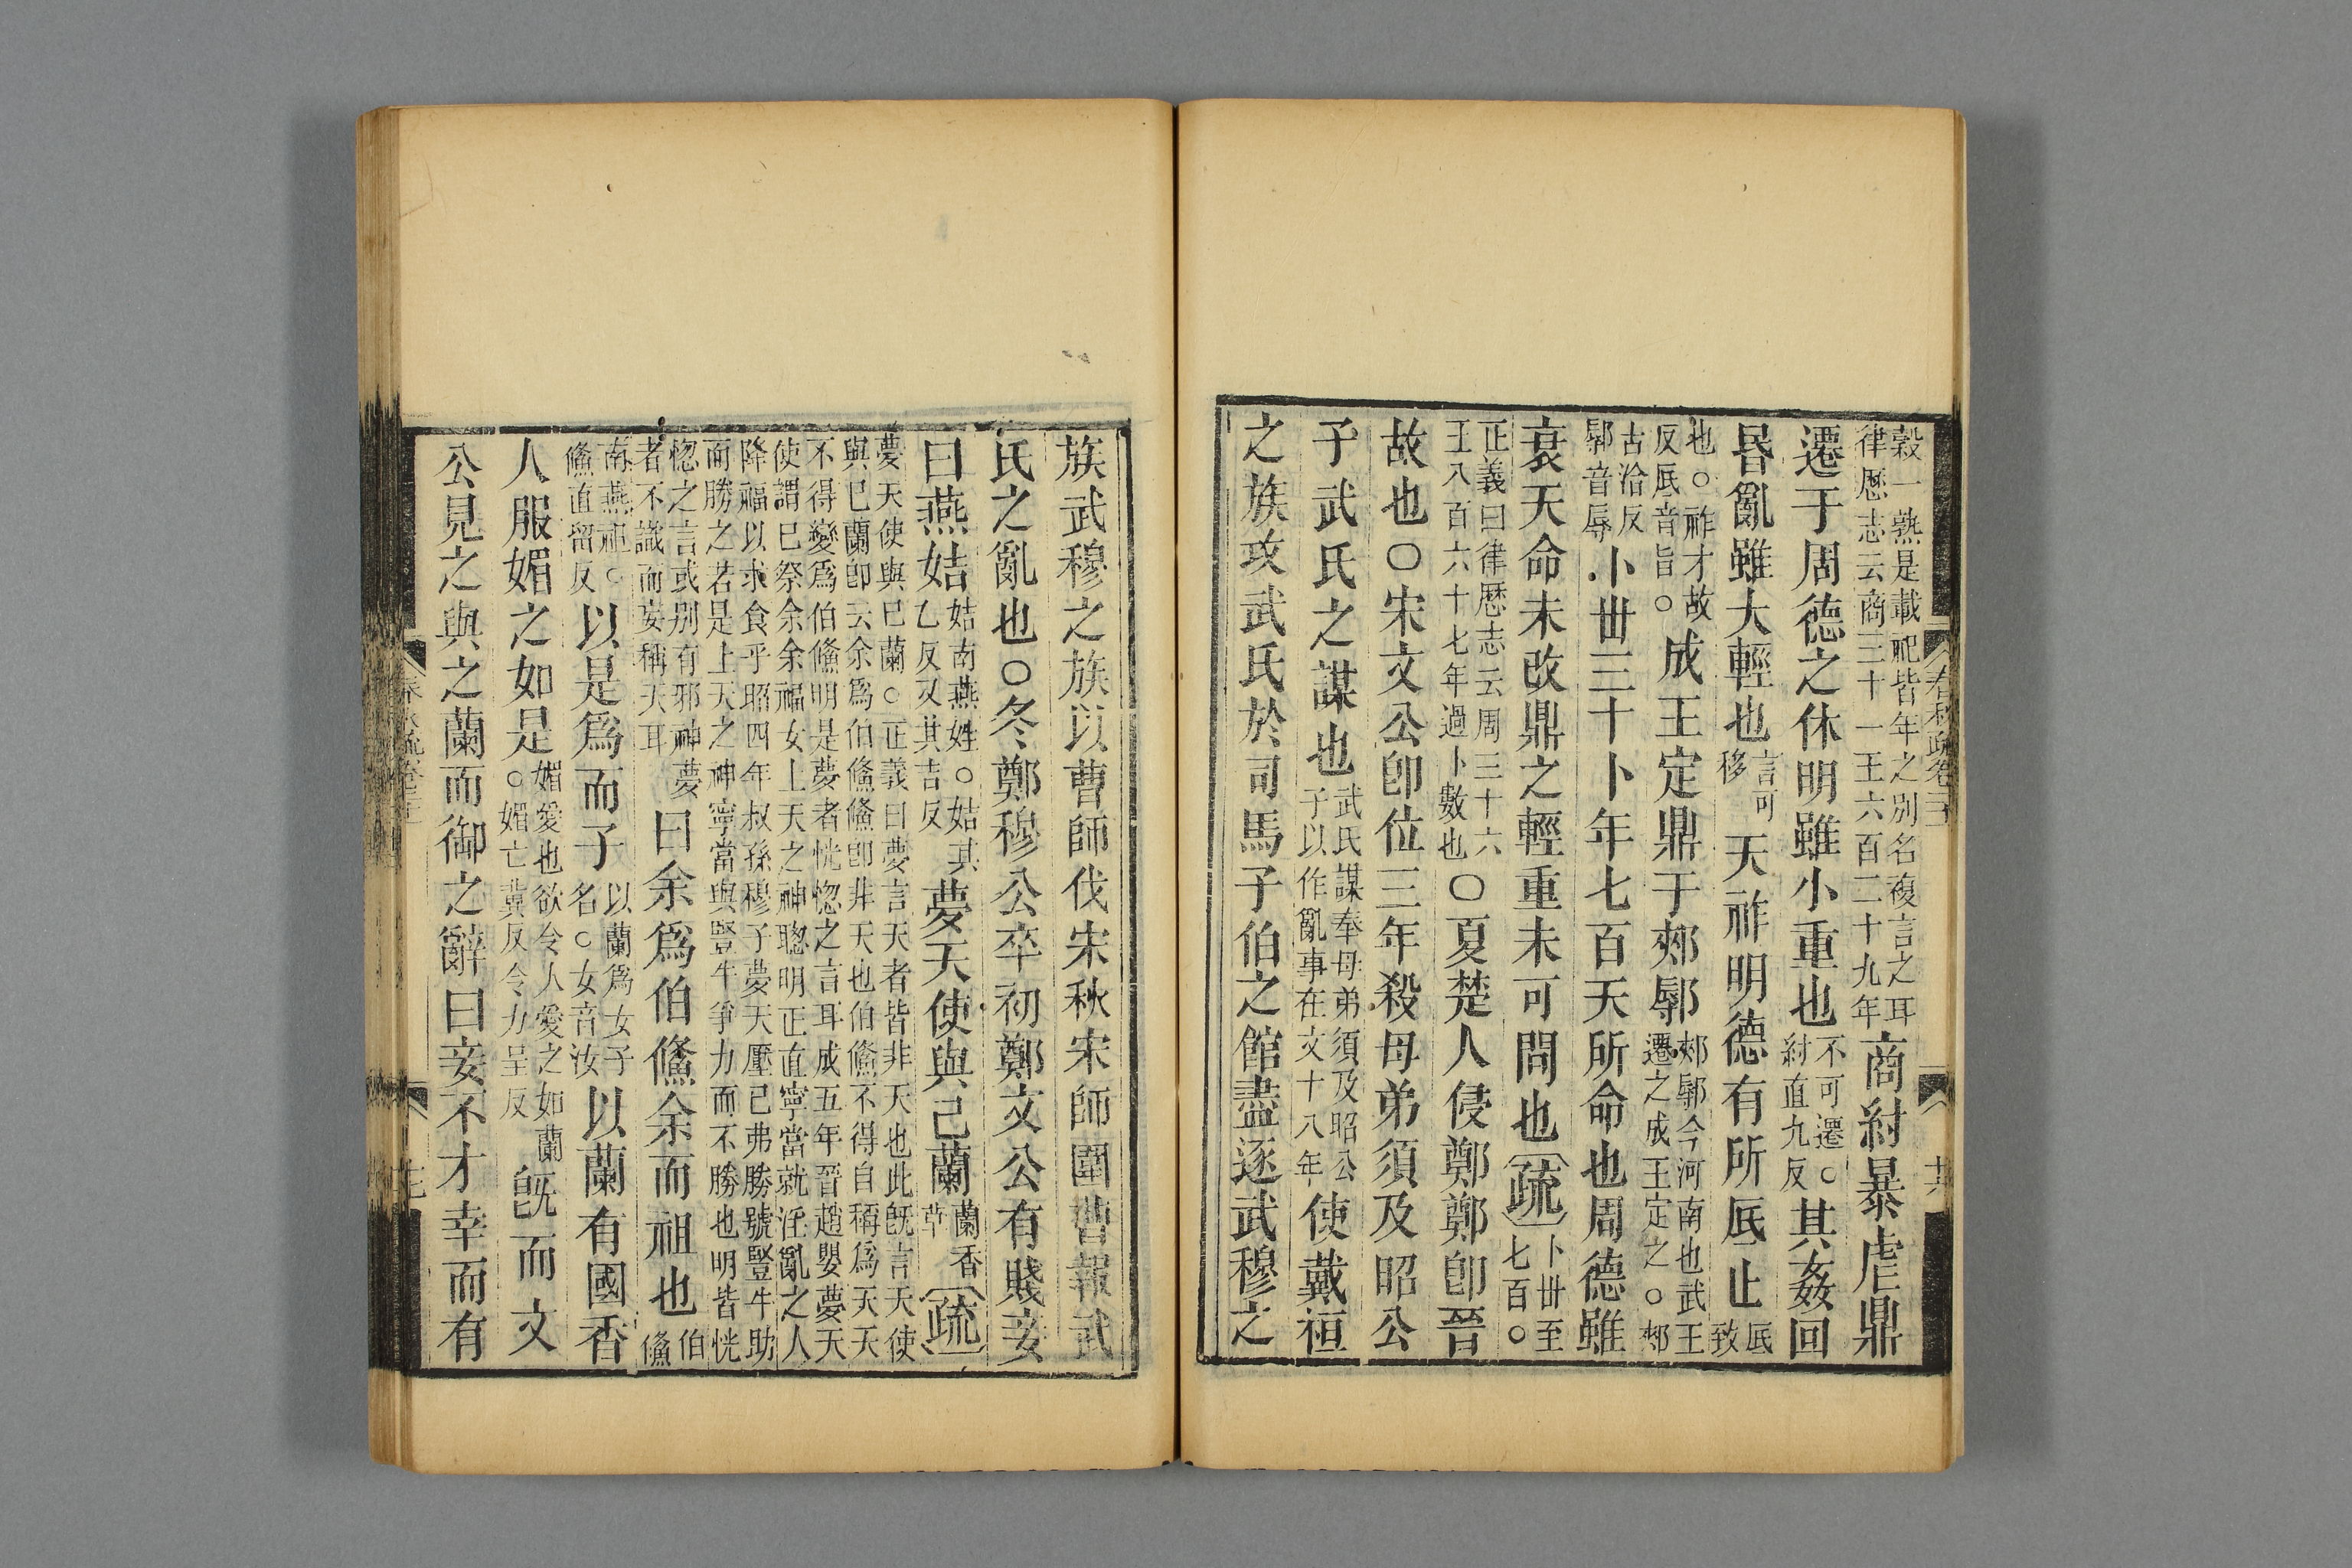 穀一熟是載祀皆年之別名複言之耳
律厯志云商三十一王六百二十九年
商紂暴虐鼎
遷于周德之休明雖小重也
不可遷○
紂直九反
其姦回
昬亂雖大輕也
言可
移
天祚明德有所厎止
厎
致
也○祚才故
反厎音旨○
成王定鼎于郟鄏
郟鄏今河南也武王
遷之成王定之○郟
古洽反
鄏音辱
卜丗三十卜年七百天所命也周德雖
衰天命未改鼎之輕重未可問也
疏
卜丗至
七百○
正義曰律厯志云周三十六
王八百六十七年過卜數也
○夏楚人侵鄭鄭卽晉
故也○宋文公卽位三年殺母弟須及昭公
子武氏之謀也
武氏謀奉母弟須及昭公
子以作亂事在文十八年
使戴桓
之族攻武氏於司馬子伯之館盡逐武穆之
春秋疏卷二十一
族武穆之族以曹師伐宋秋宋師圍曹報武
氏之亂也○冬鄭穆公卒初鄭文公有賤妾
曰燕姞
姞南燕姓○姞其
乙反又其吉反
夢天使與己蘭
蘭香
草
疏
夢天使與已蘭○正義曰夢言天者皆非天也此旣言天使
與已蘭卽云余爲伯鯈鯈卽非天也伯鯈不得自稱爲天天
不得變爲伯鯈明是夢者恍惚之言耳成五年晉趙嬰夢天
使謂已祭余余福女上天之神聰明正直寧當就淫亂之人
降福以求食乎昭四年叔孫穆子夢天壓已弗勝號豎牛助
而勝之若是上天之神寧當與豎牛爭力而不勝也明皆恍
惚之言或別有邪神夢
者不識而妄稱天耳
曰余爲伯鯈余而祖也
伯
鯈
南燕祖○
鯈直留反
以是爲而子
以蘭爲女子
名○女音汝
以蘭有國香
人服媚之如是
媚愛也欲令人愛之如蘭
○媚亡冀反令力呈反
旣而文
公見之與之蘭而御之辭曰妾不才幸而有